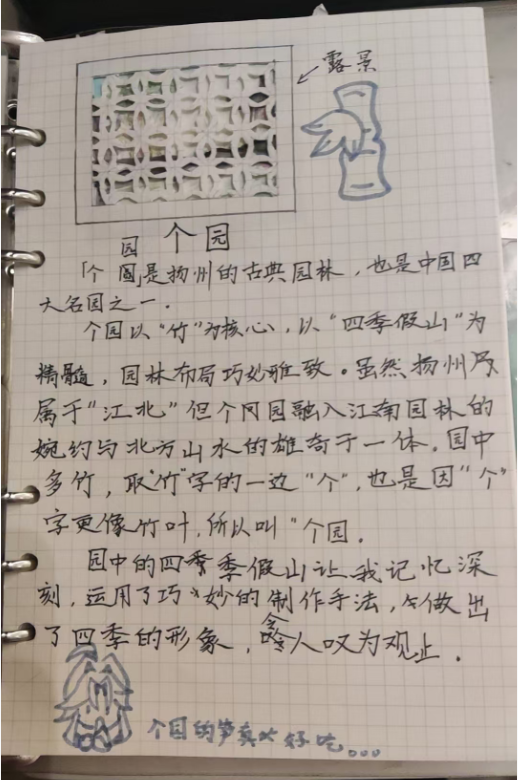 露景
个园
园
个园是扬州的古典园林，也是中国四
大名园之一.
个园以"竹"为核心，以"四季假山"为
精髓，园林布局巧妙雅致。虽然扬州
属于"江北"但个园融入江南园林的
婉约与北方山水的雄奇于一体。园中
多竹，取"竹"字的一边"个"，也是因"个"
字更像竹叶，所以叫"个园.
园中的四季季假山让我记忆深
刻，运用了巧妙的制作手法，做出
了四季的形象，令人叹为观止.
个园的笋真好吃...